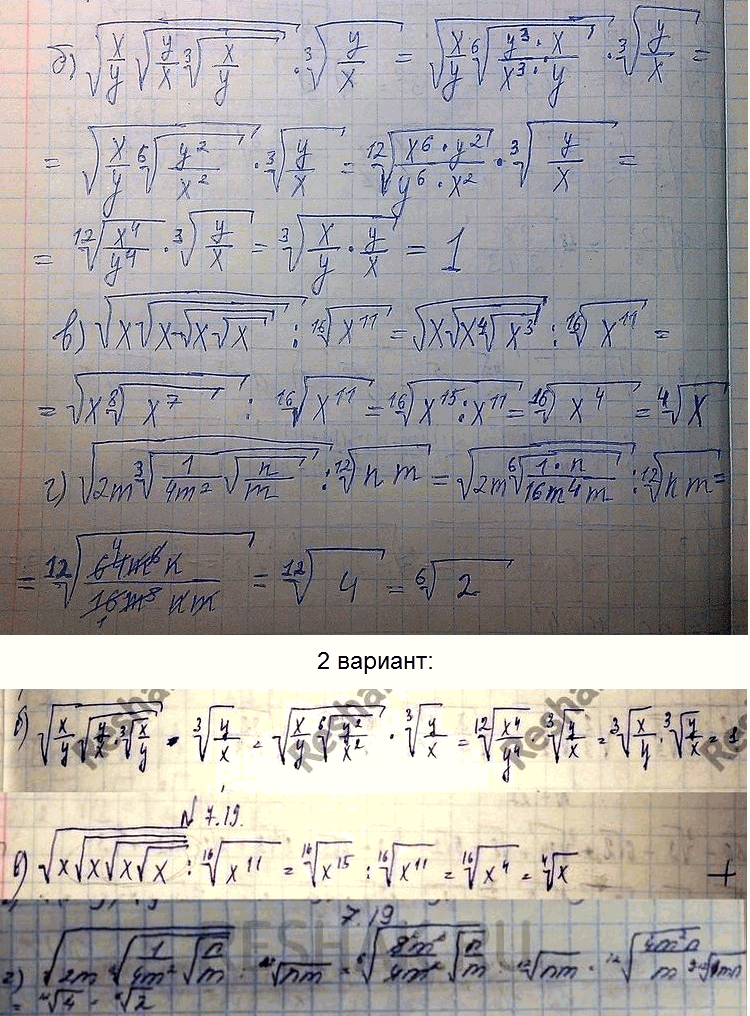 б) √(x/y √(y/x ∛(x/y))) · ∛(y/x) = √(x/y ⁶√(y³·x/x³·y)) · ∛(y/x) =
= √(x/y ⁶√(y²/x²)) · ∛(y/x) = ¹²√(x⁶·y²/y⁶·x²) · ∛(y/x) =
= ¹²√(x⁴/y⁴) · ∛(y/x) = ∛(x/y · y/x) = 1
в) √(x√(x√(x√x))) : ¹⁶√(x¹¹) = √(x√(x⁴√(x³))) : ¹⁶√(x¹¹) =
= √(x ⁸√(x⁷)) : ¹⁶√(x¹¹) = ¹⁶√(x¹⁵:x¹¹) = ¹⁶√(x⁴) = ⁴√x
г) √(2m ∛(1/4m² √(n/m))) : ¹²√(nm) = √(2m ⁶√(1·n/16m⁴m)) : ¹²√(nm) =
= ¹²√(64m⁶n/16m⁵nm) = ¹²√4 = ⁶√2
2 вариант:
б) √(x/y √(y/x · ∛(x/y))) · ∛(y/x) = √(x/y ⁶√(y²/x²)) · ∛(y/x) = ¹²√(x⁴/y⁴) · ∛(y/x) = ∛(x/y) · ∛(y/x) = 1
N 7.19.
в) √(x√(x√(x√x))) : ¹⁶√(x¹¹) = ¹⁶√(x¹⁵) : ¹⁶√(x¹¹) = ¹⁶√(x⁴) = ⁴√x +
7.19
RESHAK.RU
г) √(2m ∛(1/4m² √(n/m))) : ¹²√(nm) =
= ¹²√4 = ⁶√2